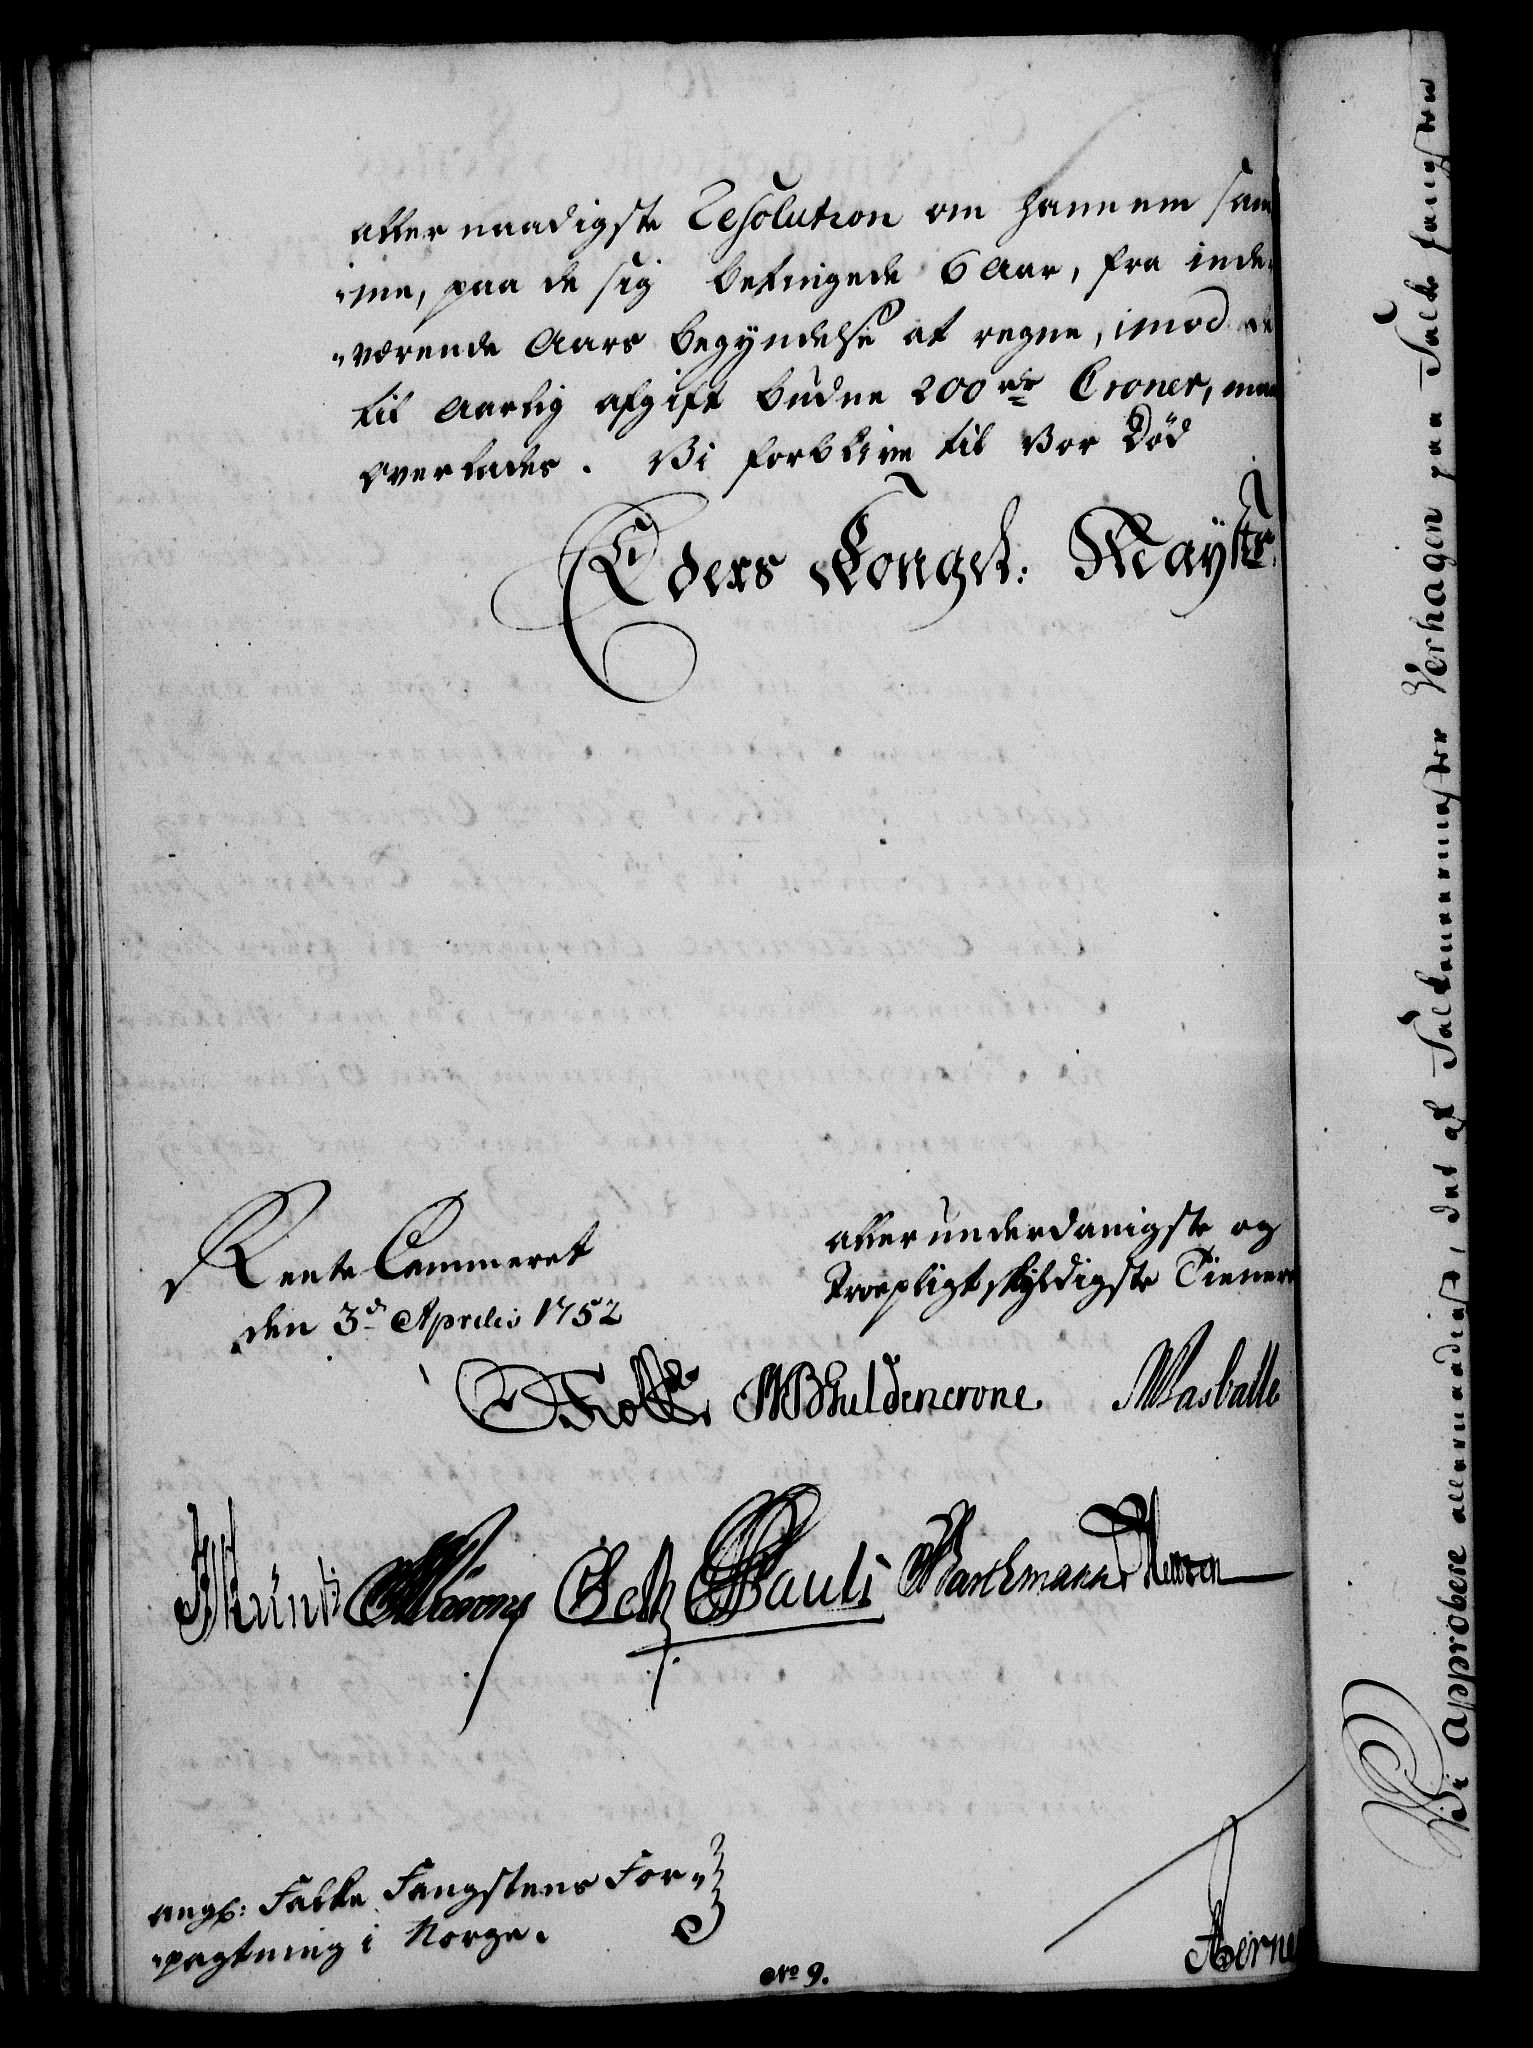 allernaadigste Resolution om hannem sam
„me, paa de sig betingede 6 Aar, fra inde„
„værende Aars begyndelse at regne, imod de
til Aarlig afgift budne 200 rdr Croner, maa
overlades. Vi forblive til vor Død
Eders Kongel: Mayts
Rente Cammeret
den 3d Aprilis 1752
allerunderdanigste og
troepligtskyldigste Tienere
Holck WBGuldencrone Wasballe
Pauli Barthmann
angl: Falke Fangstens For„
„pagtning i Norge.
No 9.
Vi Approbere allernaadigst, det af Falkeneermester Verhagen paa Falke fangsten